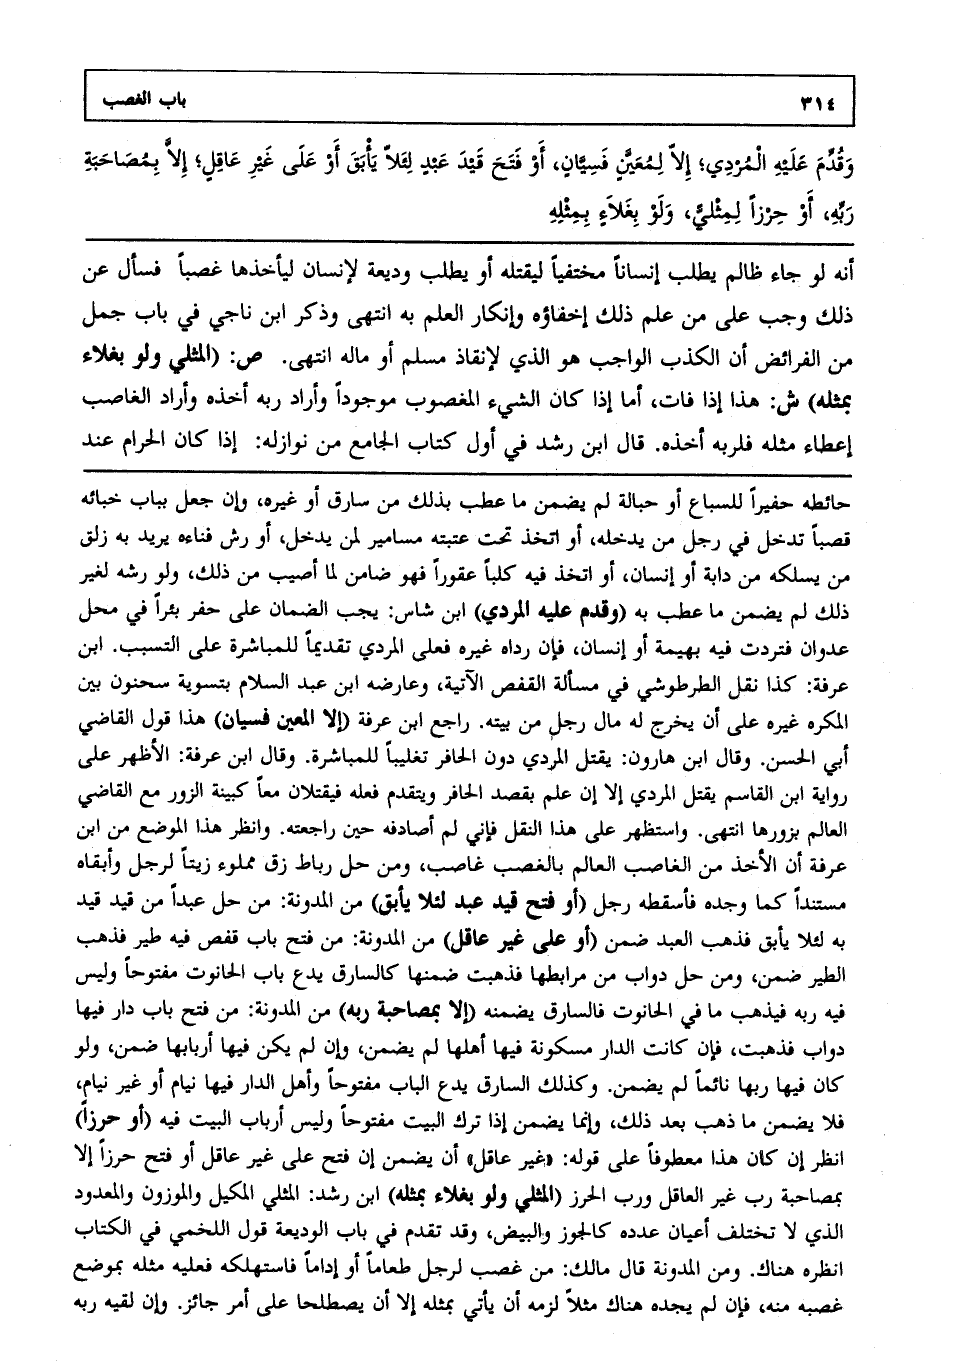 ٣١٤ باب الغصب
وَقُدِّمَ عَلَيْهِ الْمُرْدِي؛ إِلاَّ لِمُعَيَّنٍ فَسِيَّانِ، أَوْ فَتَحَ قَيْدَ عَبْدٍ لِئَلاَّ يَأْبَقَ أَوْ عَلَى غَيْرِ عَاقِلٍ؛ إِلاَّ بِمُصَاحَبَةِ
رَبِّهِ، أَوْ حِرْزاً لِمِثْلِيٍّ، وَلَوْ بِغَلاَءٍ بِمِثْلِهِ
أنه لو جاء ظالم يطلب إنساناً مختفياً ليقتله أو يطلب وديعة لإنسان ليأخذها غصباً فسأل عن
ذلك وجب على من علم ذلك إخفاؤه وإنكار العلم به انتهى وذكر ابن ناجي في باب جمل
من الفرائض أن الكذب الواجب هو الذي لإنقاذ مسلم أو ماله انتهى. ص: (المثلي ولو بغلاء
بمثله) ش: هذا إذا فات، أما إذا كان الشيء المغصوب موجوداً وأراد ربه أخذه وأراد الغاصب
إعطاء مثله فلربه أخذه. قال ابن رشد في أول كتاب الجامع من نوازله: إذا كان الحرام عند
حائطه حفيراً للسباع أو حبالة لم يضمن ما عطب بذلك من سارق أو غيره، وإن جعل بباب خبائه
قصباً تدخل في رجل من يدخله، أو اتخذ تحت عتبته مسامير لمن يدخل، أو رش فناءه يريد به زلق
من يسلكه من دابة أو إنسان، أو اتخذ فيه كلباً عقوراً فهو ضامن لما أصيب من ذلك، ولو رشه لغير
ذلك لم يضمن ما عطب به (وقدم عليه المردي) ابن شاس: يجب الضمان على حفر بئراً في محل
عدوان فتردت فيه بهيمة أو إنسان، فإن رداه غيره فعلى المردي تقديماً للمباشرة على التسبب. ابن
عرفة: كذا نقل الطرطوشي في مسألة القفص الآتية، وعارضه ابن عبد السلام بتسوية سحنون بين
المكره غيره على أن يخرج له مال رجل من بيته. راجع ابن عرفة (إلا المعين فسيان) هذا قول القاضي
أبي الحسن. وقال ابن هارون: يقتل المردي دون الحافر تغليباً للمباشرة. وقال ابن عرفة: الأظهر على
رواية ابن القاسم يقتل المردي إلا إن علم بقصد الحافر ويتقدم فعله فيقتلان معاً كبينة الزور مع القاضي
العالم بزورها انتهى. واستظهر على هذا النقل فإني لم أصادفه حين راجعته. وانظر هذا الموضع من ابن
عرفة أن الأخذ من الغاصب العالم بالغصب غاصب، ومن حل رباط زق مملوء زيتاً لرجل وأبقاه
مستنداً كما وجده فأسقطه رجل (أو فتح قيد عبد لئلا يأبق) من المدونة: من حل عبداً من قيد قيد
به لئلا يأبق فذهب العبد ضمن (أو على غير عاقل) من المدونة: من فتح باب قفص فيه طير فذهب
الطير ضمن، ومن حل دواب من مرابطها فذهبت ضمنها كالسارق يدع باب الحانوت مفتوحاً وليس
فيه ربه فيذهب ما في الحانوت فالسارق يضمنه (إلا بمصاحبة ربه) من المدونة: من فتح باب دار فيها
دواب فذهبت، فإن كانت الدار مسكونة فيها أهلها لم يضمن، وإن لم يكن فيها أربابها ضمن، ولو
كان فيها ربها نائماً لم يضمن. وكذلك السارق يدع الباب مفتوحاً وأهل الدار فيها نيام أو غير نيام،
فلا يضمن ما ذهب بعد ذلك، وإنما يضمن إذا ترك البيت مفتوحاً وليس أرباب البيت فيه (أو حرزاً)
انظر إن كان هذا معطوفاً على قوله: «غير عاقل» أن يضمن إن فتح على غير عاقل أو فتح حرزاً إلا
بمصاحبة رب غير العاقل ورب الحرز (المثلي ولو بغلاء بمثله) ابن رشد: المثلي المكيل والموزون والمعدود
الذي لا تختلف أعيان عدده كالجوز والبيض، وقد تقدم في باب الوديعة قول اللخمي في الكتاب
انظره هناك. ومن المدونة قال مالك: من غصب لرجل طعاماً أو إداماً فاستهلكه فعليه مثله بموضع
غصبه منه، فإن لم يجده هناك مثلاً لزمه أن يأتي بمثله إلا أن يصطلحا على أمر جائز. وإن لقيه ربه